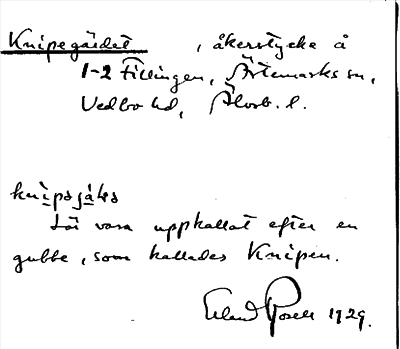 Knipegärdet, åkerstycke å
1-2 Fillingen, Ärtemarks sn,
Vedbo hd, Älvsb. l.
Lär vara uppkallat efter en
gubbe, som kallades Knipen.
Erland Rosell 1929.